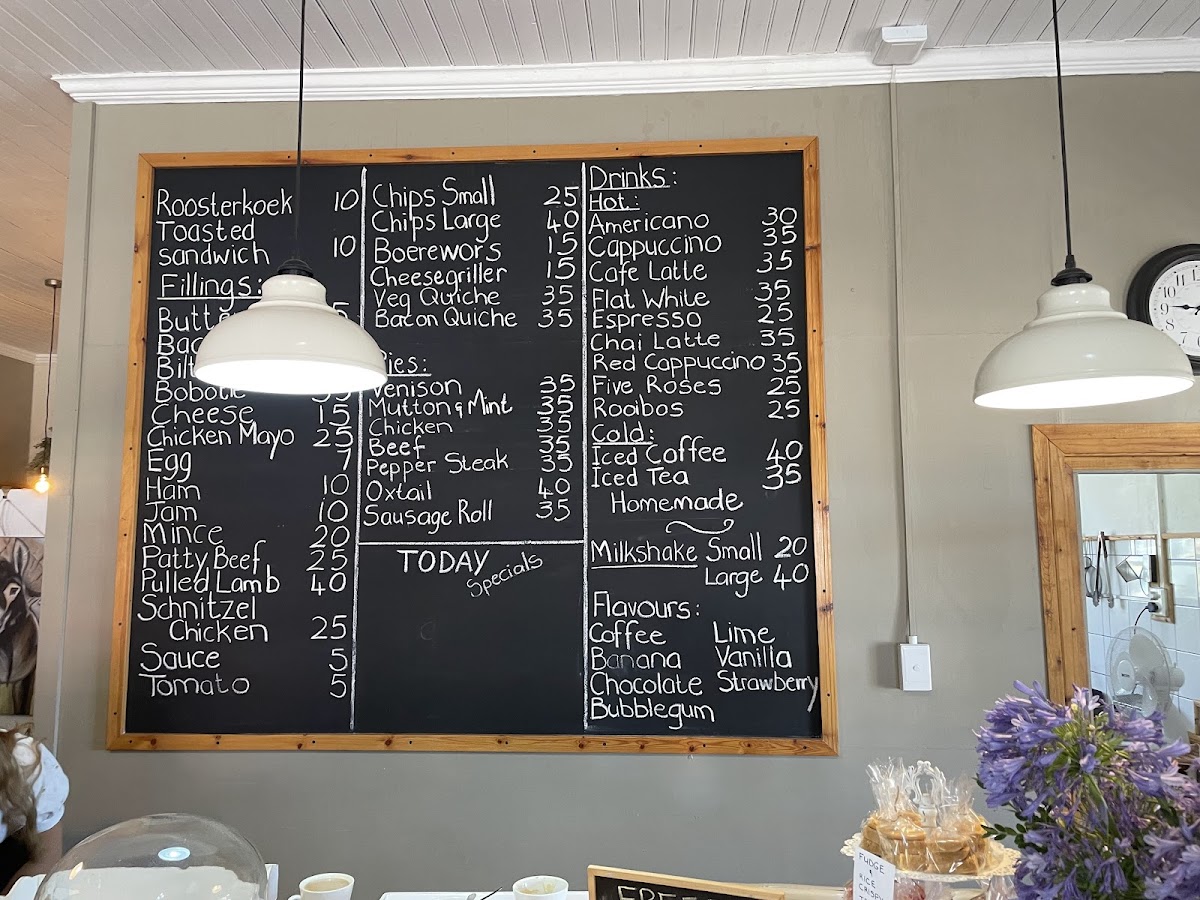 Roosterkoek 10
Toasted
sandwich 10
Fillings:
Bobotie
Cheese 15
Chicken Mayo 25
Egg 7
Ham 10
Jam 10
Mince 20
Patty Beef 25
Pulled Lamb 40
Schnitzel
Chicken 25
Sauce 5
Tomato 5
Chips Small 25
Chips Large 40
Boerewors 15
Cheesegriller 15
Veg Quiche 35
Bacon Quiche 35
Pies:
Venison 35
Mutton & Mint 35
Chicken 35
Beef 35
Pepper Steak 35
Oxtail 40
Sausage Roll 35
TODAY
Specials
Drinks:
Hot:
Americano 30
Cappuccino 35
Cafe Latte 35
Flat White 35
Espresso 25
Chai Latte 35
Red Cappuccino 35
Five Roses 25
Rooibos 25
Cold:
Iced Coffee 40
Iced Tea 35
Homemade
Milkshake Small 20
Large 40
Flavours:
Coffee Lime
Banana Vanilla
Chocolate Strawberry
Bubblegum
FUDGE
RICE
CRISPY